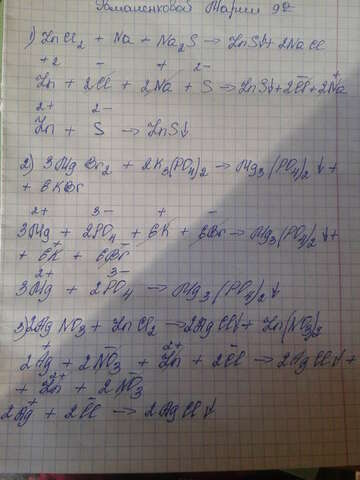 Романенковой Марии 9г
1) ZnCl₂ + Na + Na₂S → ZnS↓ + 2NaCl
+2 - + 2-
Zn + 2Cl + 2Na + S → ZnS↓ + 2Cl⁻ + 2Na⁺
2+ 2-
Zn + S → ZnS↓
2) 3MgBr₂ + 2K₃(PO₄)₂ → Mg₃(PO₄)₂↓ +
+ 6KBr
2+ 3- + -
3Mg + 2PO₄ + 6K + 6Br → Mg₃(PO₄)₂↓ +
+ 6K⁺ + 6Br⁻
2+ 3-
3Mg + 2PO₄ → Mg₃(PO₄)₂↓
3) 2AgNO₃ + ZnCl₂ → 2AgCl↓ + Zn(NO₃)₂
2Ag⁺ + 2NO₃⁻ + Zn²⁺ + 2Cl⁻ → 2AgCl↓ +
+ Zn²⁺ + 2NO₃⁻
2Ag⁺ + 2Cl⁻ → 2AgCl↓